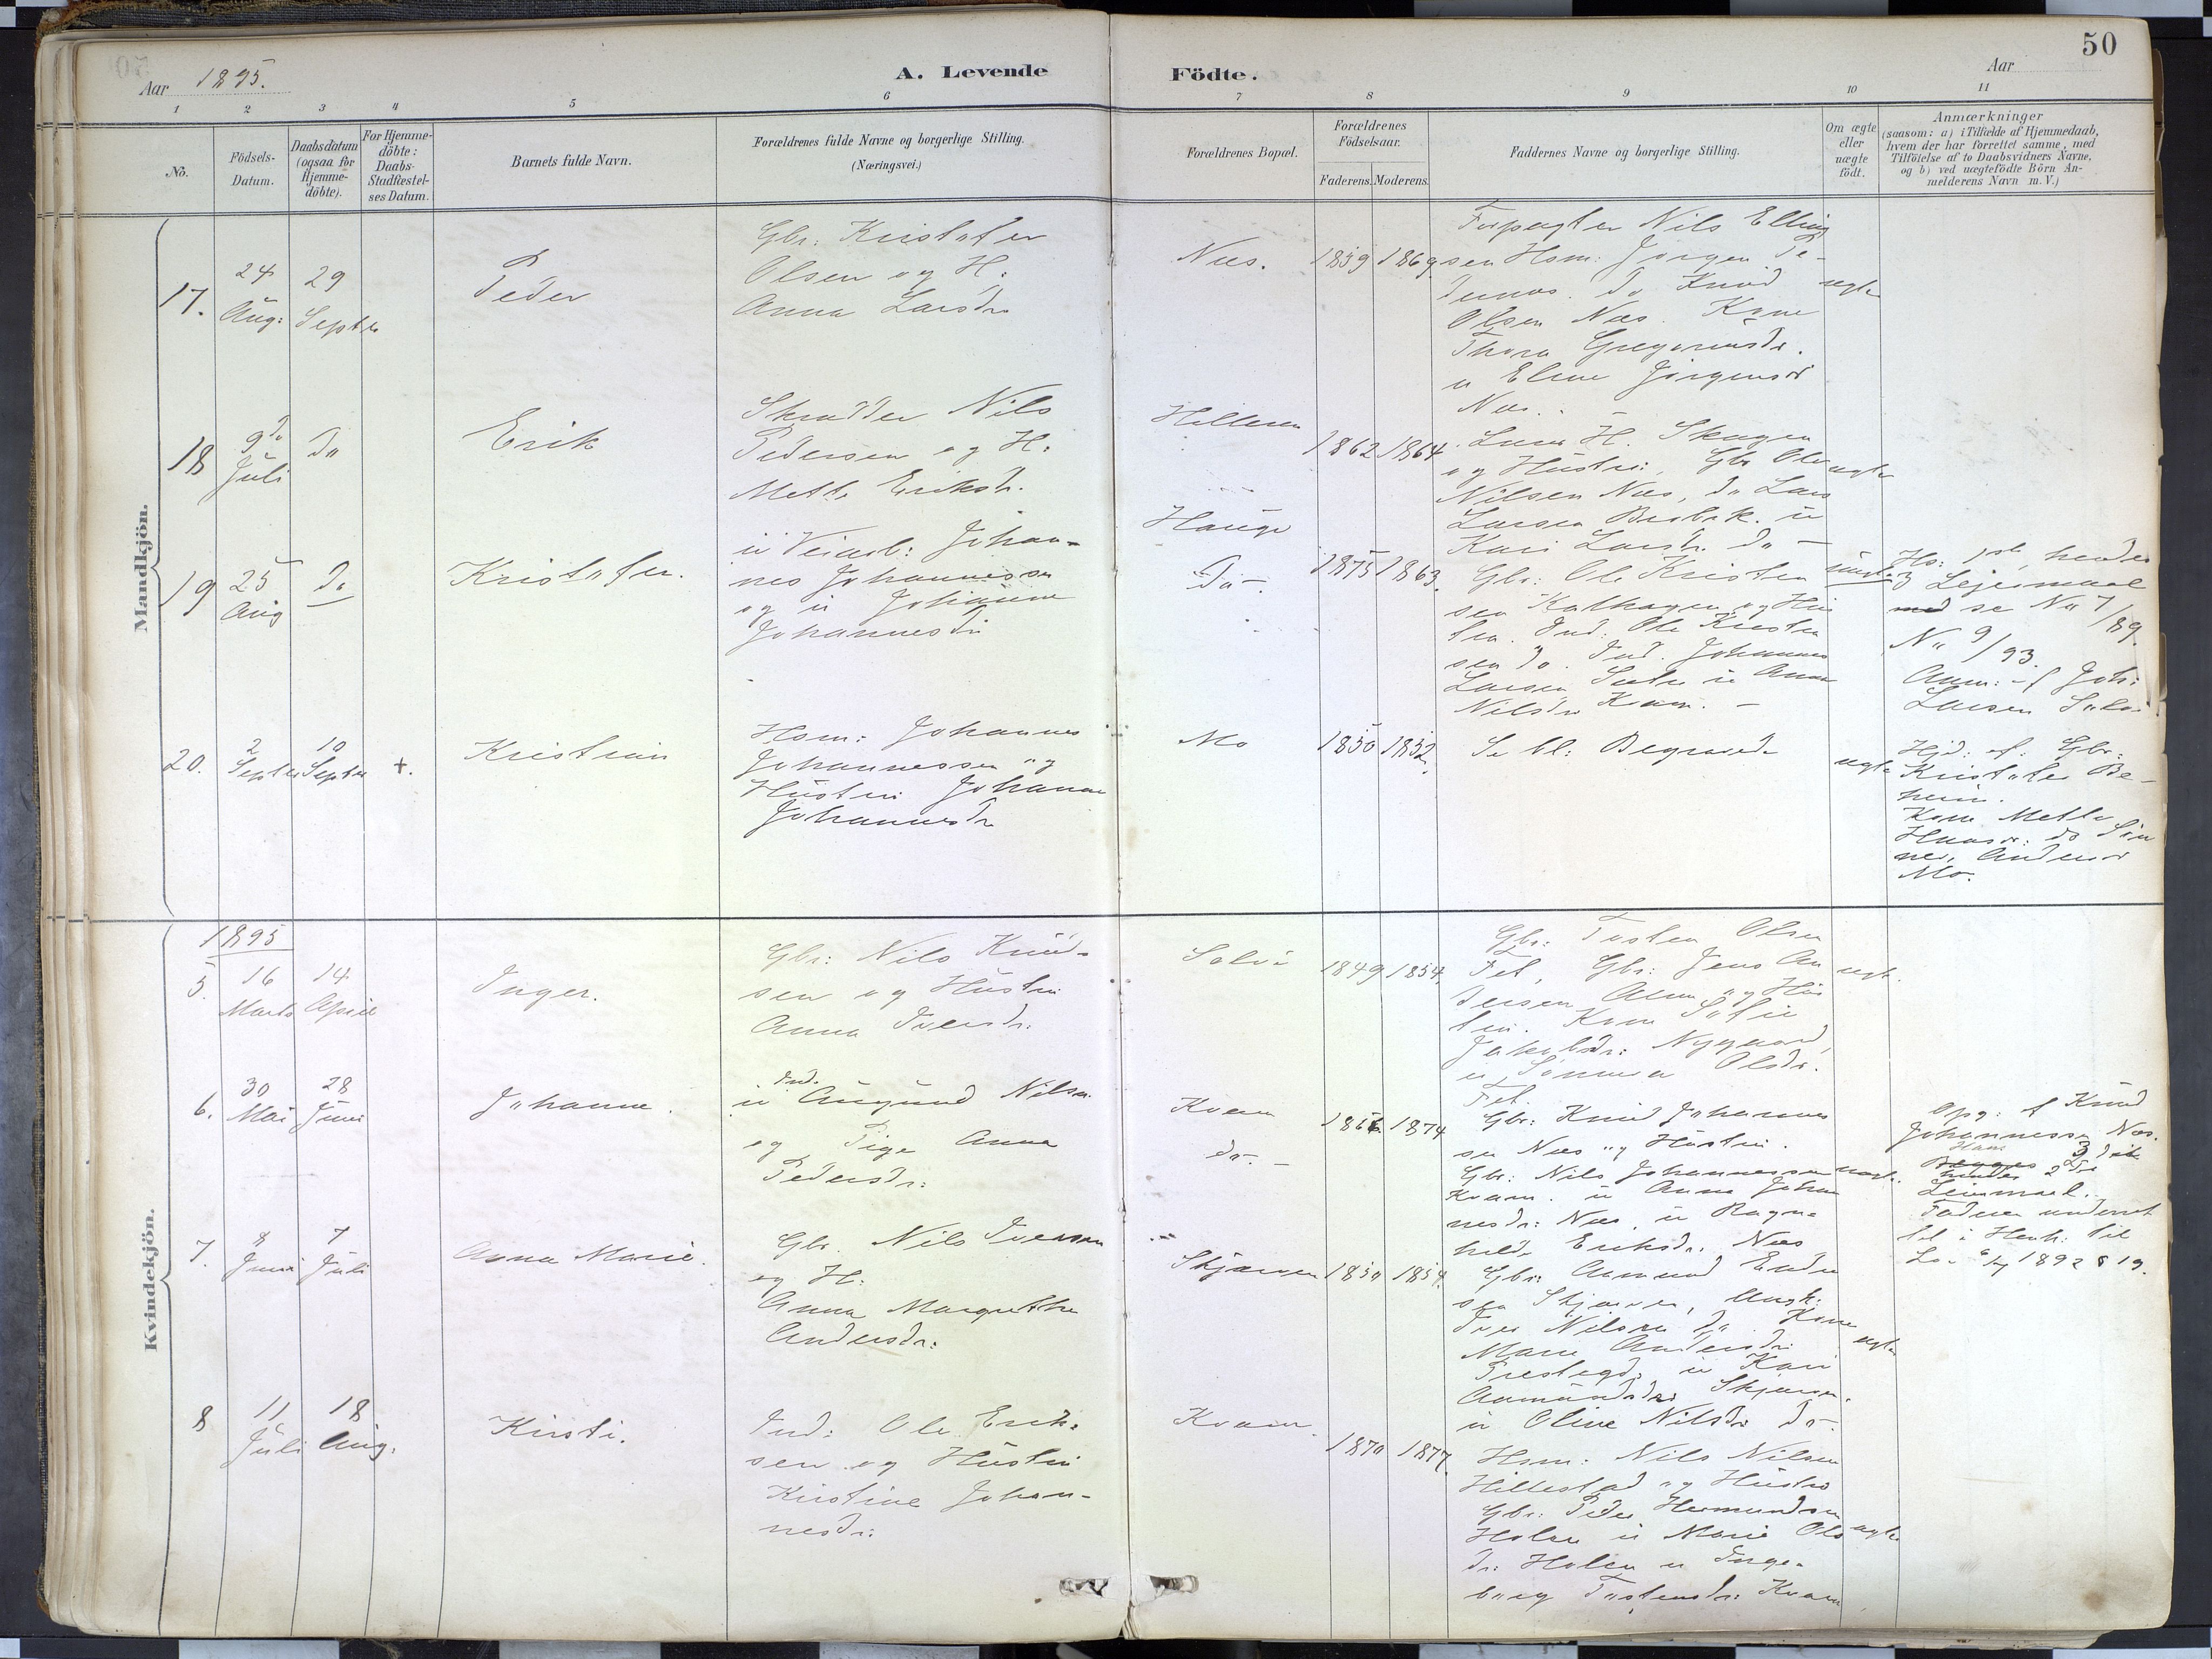 50
Aar 1895.
A. Levende Födte.
Aar
1 2 3 4 5 6 7 8 9 10 11
No.
Födsels-
Datum.
Daabsdatum
(ogsaa for
Hjemme-
döbte).
For Hjemme-
döbte:
Daabs-
Stadfæstel-
ses Datum.
Barnets fulde Navn.
Forældrenes fulde Navne og borgerlige Stilling.
(Næringsvei.)
Forældrenes Bopæl.
Forældrenes
Födselsaar.
Faderens. Moderens.
Faddernes Navne og borgerlige Stilling.
Om ægte
eller
uægte
födt.
Anmærkninger
(saasom: a) i Tilfælde af Hjemmedaab,
hvem der har forrettet samme, med
Tilföielse af to Daabsvidners Navne,
og b) ved uægtefödte Börn An-
melderens Navn m. V.)
Mandkjön.
17.
24
Aug:
29
Septr
Peder
Gbr: Kristofer
Olsen og H:
Anna Larsdr
Nes.
1859 1869
Forpagter Nils Elling
sen Hsm: Jørgen Pe-
do Knud
Olsen Nes. Kone
Thora Gregoriusdr.
u Eline Jörgensdr
Nes.
ægte
18
9de
Juli
do
Erik
Skrædder Nils
Pedersen og H:
Mette Eriksdr.
Hillesen
1862 1864
Lars H. Skagen
og Hustru, Gbr Ole
Nilsen Nes, do Lars
Larsen u
Kari Larsdr. do -
ægte
19
25
Aug
do
Kristofer.
u Veiarb: Johan-
nes Johannessen
og u Johanne
Johannesdr
Hauge
do -.
1875 1863.
Gbr: Ole Kristen
sen Kalhagen og Hu
stru. Ind: Ole Kristen
sen do. Ind. Johannes
Larsen u Anna
Nilsdr Kvam. -
uægte
Hs: 1ste hendes
3 Lejermaal
med se No 7/89.
No 9/93.
Anm: af Joh:
Larsen
20.
2
Septbr
10
Septbr
+.
Kristian
Hsm: Johannes
Johannessen og
Hustru Johanne
Johannesdr
Mo
1850 1852.
Se bl: Begravede
ægte
Hjd: af: Gbr:
Kristofer Be-
heim.
Kone Mette
Hansdr: do
Andersdr
Mo.
Kvindekjön.
1895
5.
16
Marts
14
April
Inger.
Gbr: Nils Knud-
sen og Hustru
Anna Iversdr.
Solvi
1849 1854.
Gbr: Tosten Olsen
Fet, Gbr: Jens An
dersen og Hu
stru. Kone Sofie
Jakobsdr: Nygaard,
u Sønneva Olsdr.
Fet.
ægt.
6.
30
Mai
28
Juni
Johanne.
Ind.
u Augund Nilsen
og Pige Anna
Pedersdr:
Kvam
do. -
1866. 1874
Gbr: Knud Johannes
sen Nes og Hustru.
Gbr: Nils Johannessen
Kvam. u Anna Johan
nesdr: Nes, u Ragn-
hilde Eriksdr. Nes
uægt.
Opg: af Knud
Johannessen Nes.
Hans 3die
Begges
hendes 2det
Leiermaal.
Faderen underret
tet i Henh: til
Lov 6/7 1892 § 19.
7.
8
Juni
7
Juli
Anna Marie.
Gbr. Nils Iversen
og H:
Anna Margrethe
Andersdr:
Skjærven
1850 1854.
Gbr: Aamund Endre
sen Skjærven, Ungk:
Iver Nilsen do Kone
Marie Andersdr:
Prestegd: u Kari
Aamundsdr: Skjærv.
u Oline Nilsdr do -.
ægte
8
11
Juli
18
Aug.
Kirsti.
Ind: Ole Erik-
sen og Hustru
Kirstine Johan-
nesdr:
Kvam.
1870 1877.
Hsm: Nils Nilsen
Hillestad og Hustru
Gbr: Peder Hermundsen
Holen u Marie Ols
dr: Holen u Inge-
borg Tostensdr: Kvam
ægte